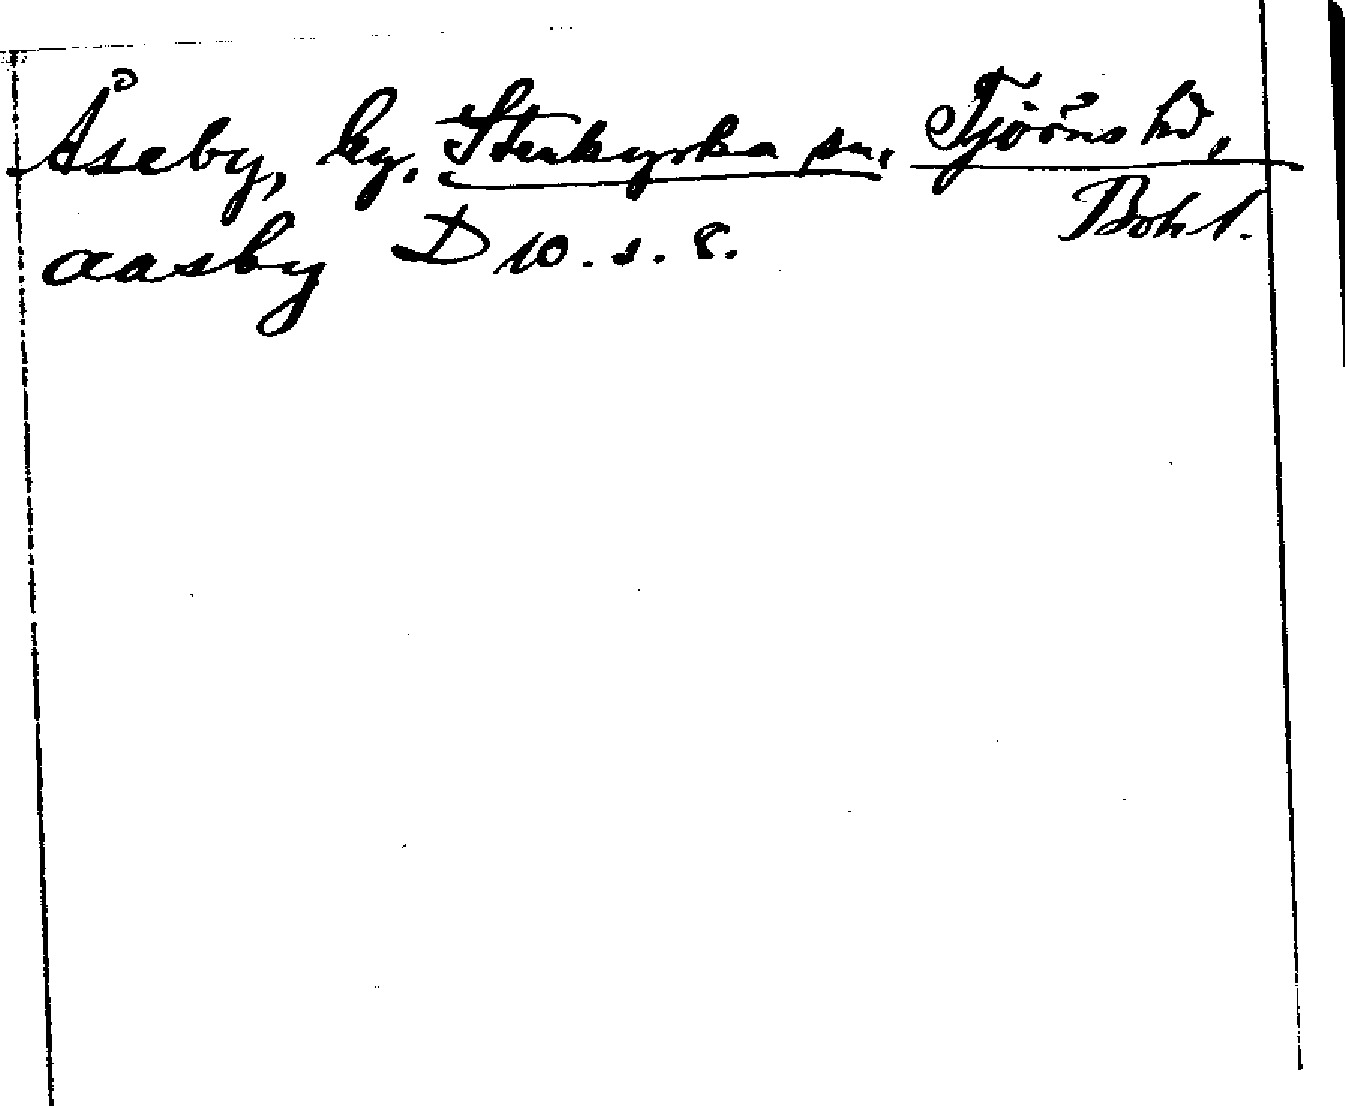 Åseby, by. Stenkyrka sn. Tjörns hd,
Bohl.
aasby D 10. s. 8.